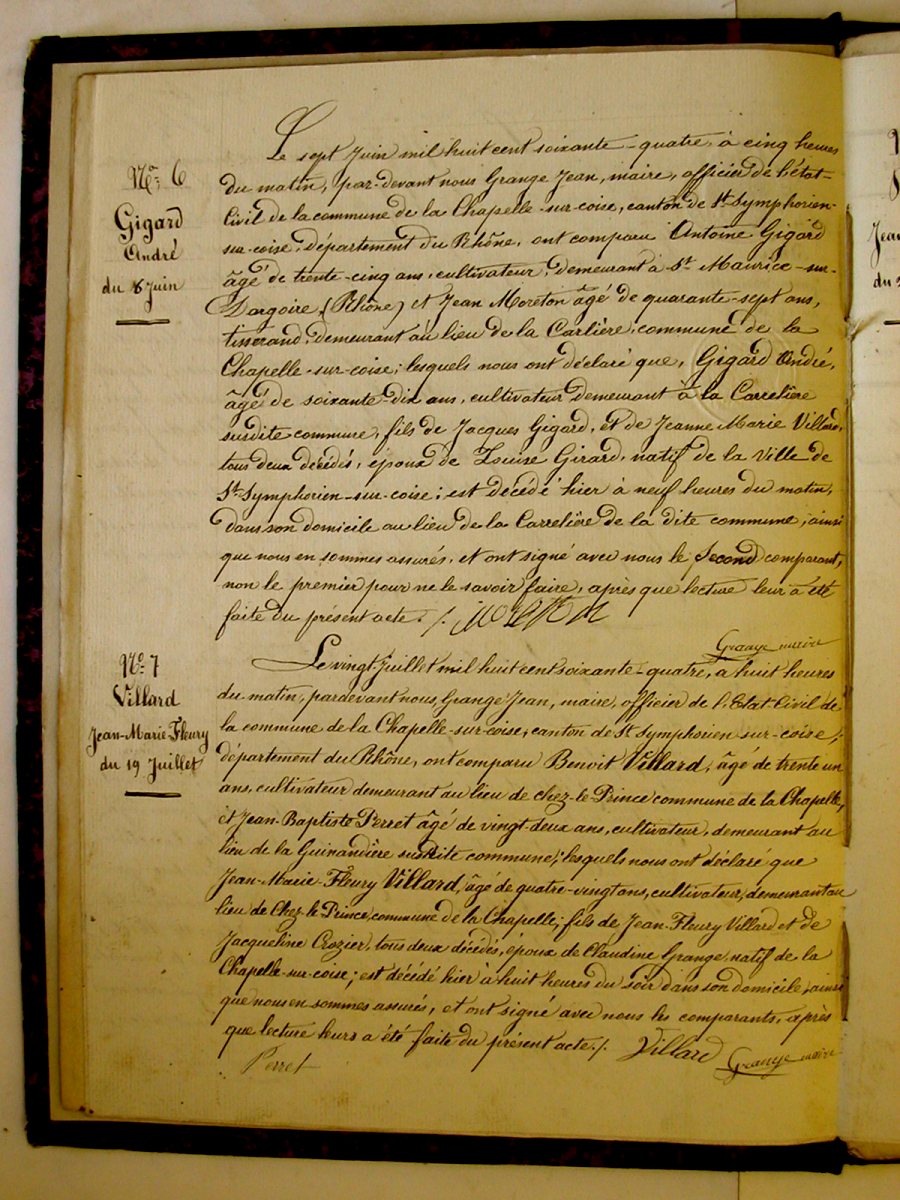 N° 6
Gigard
André
du 8 Juin
Le sept Juin mil huit cent soixante-quatre, à cinq heures
du matin, par-devant nous Grange Jean, maire, officier de l'état-
Civil de la commune de la Chapelle-sur-coise, canton de St Symphorien-
sur-coise, département du Rhône, ont comparu Antoine Gigard
âgé de trente-cinq ans, cultivateur, demeurant à St Maurice-sur-
Dargoire (Rhône) et Jean Moreton âgé de quarante-sept ans,
tisserand, demeurant au lieu de la Carlière, commune de la
Chapelle-sur-coise; lesquels nous ont déclaré que, Gigard André,
âgé de soixante-dix ans, cultivateur demeurant à la Carrelière
susdite commune, fils de Jacques Gigard, et de Jeanne Marie Villard,
tous deux décédés, époux de Louise Girard, natif de la Ville de
St Symphorien-sur-coise; est décédé hier à neuf heures du matin,
dans son domicile au lieu de la Carrelière de la dite commune, ainsi
que nous en sommes assurés, et ont signé avec nous le Second comparant,
non le premier pour ne le savoir faire, après que lecture leur a été
faite du présent acte ./. Moretton
Grange maire
N° 7
Villard
Jean-Marie-Fleury
du 19 Juillet
Le vingt Juillet mil huit cent soixante-quatre, à huit heures
du matin, pardevant nous, Grange Jean, maire, officier de l'Etat-Civil de
la commune de la Chapelle-sur-coise, canton de St Symphorien-sur-coise,
département du Rhône, ont comparu Benoit Villard, âgé de trente un
ans, cultivateur demeurant au lieu de chez-le-Prince commune de la Chapelle,
et Jean-Baptiste Perret âgé de vingt-deux ans, cultivateur, demeurant au
lieu de la Guinandière susdite commune; lesquels nous ont déclaré que
Jean-Marie-Fleury Villard, âgé de quatre-vingt ans, cultivateur, demeurant au
lieu de Chez-le-Prince, commune de la Chapelle; fils de Jean-Fleury Villard et de
Jacqueline Crozier, tous deux décédés, époux de Claudine Grange, natif de la
Chapelle-sur-coise; est décédé hier à huit heures du soir dans son domicile, ainsi
que nous en sommes assurés, et ont signé avec nous les comparants, après
que lecture leurs a été faite du présent acte ./. Villard Grange maire
Perret